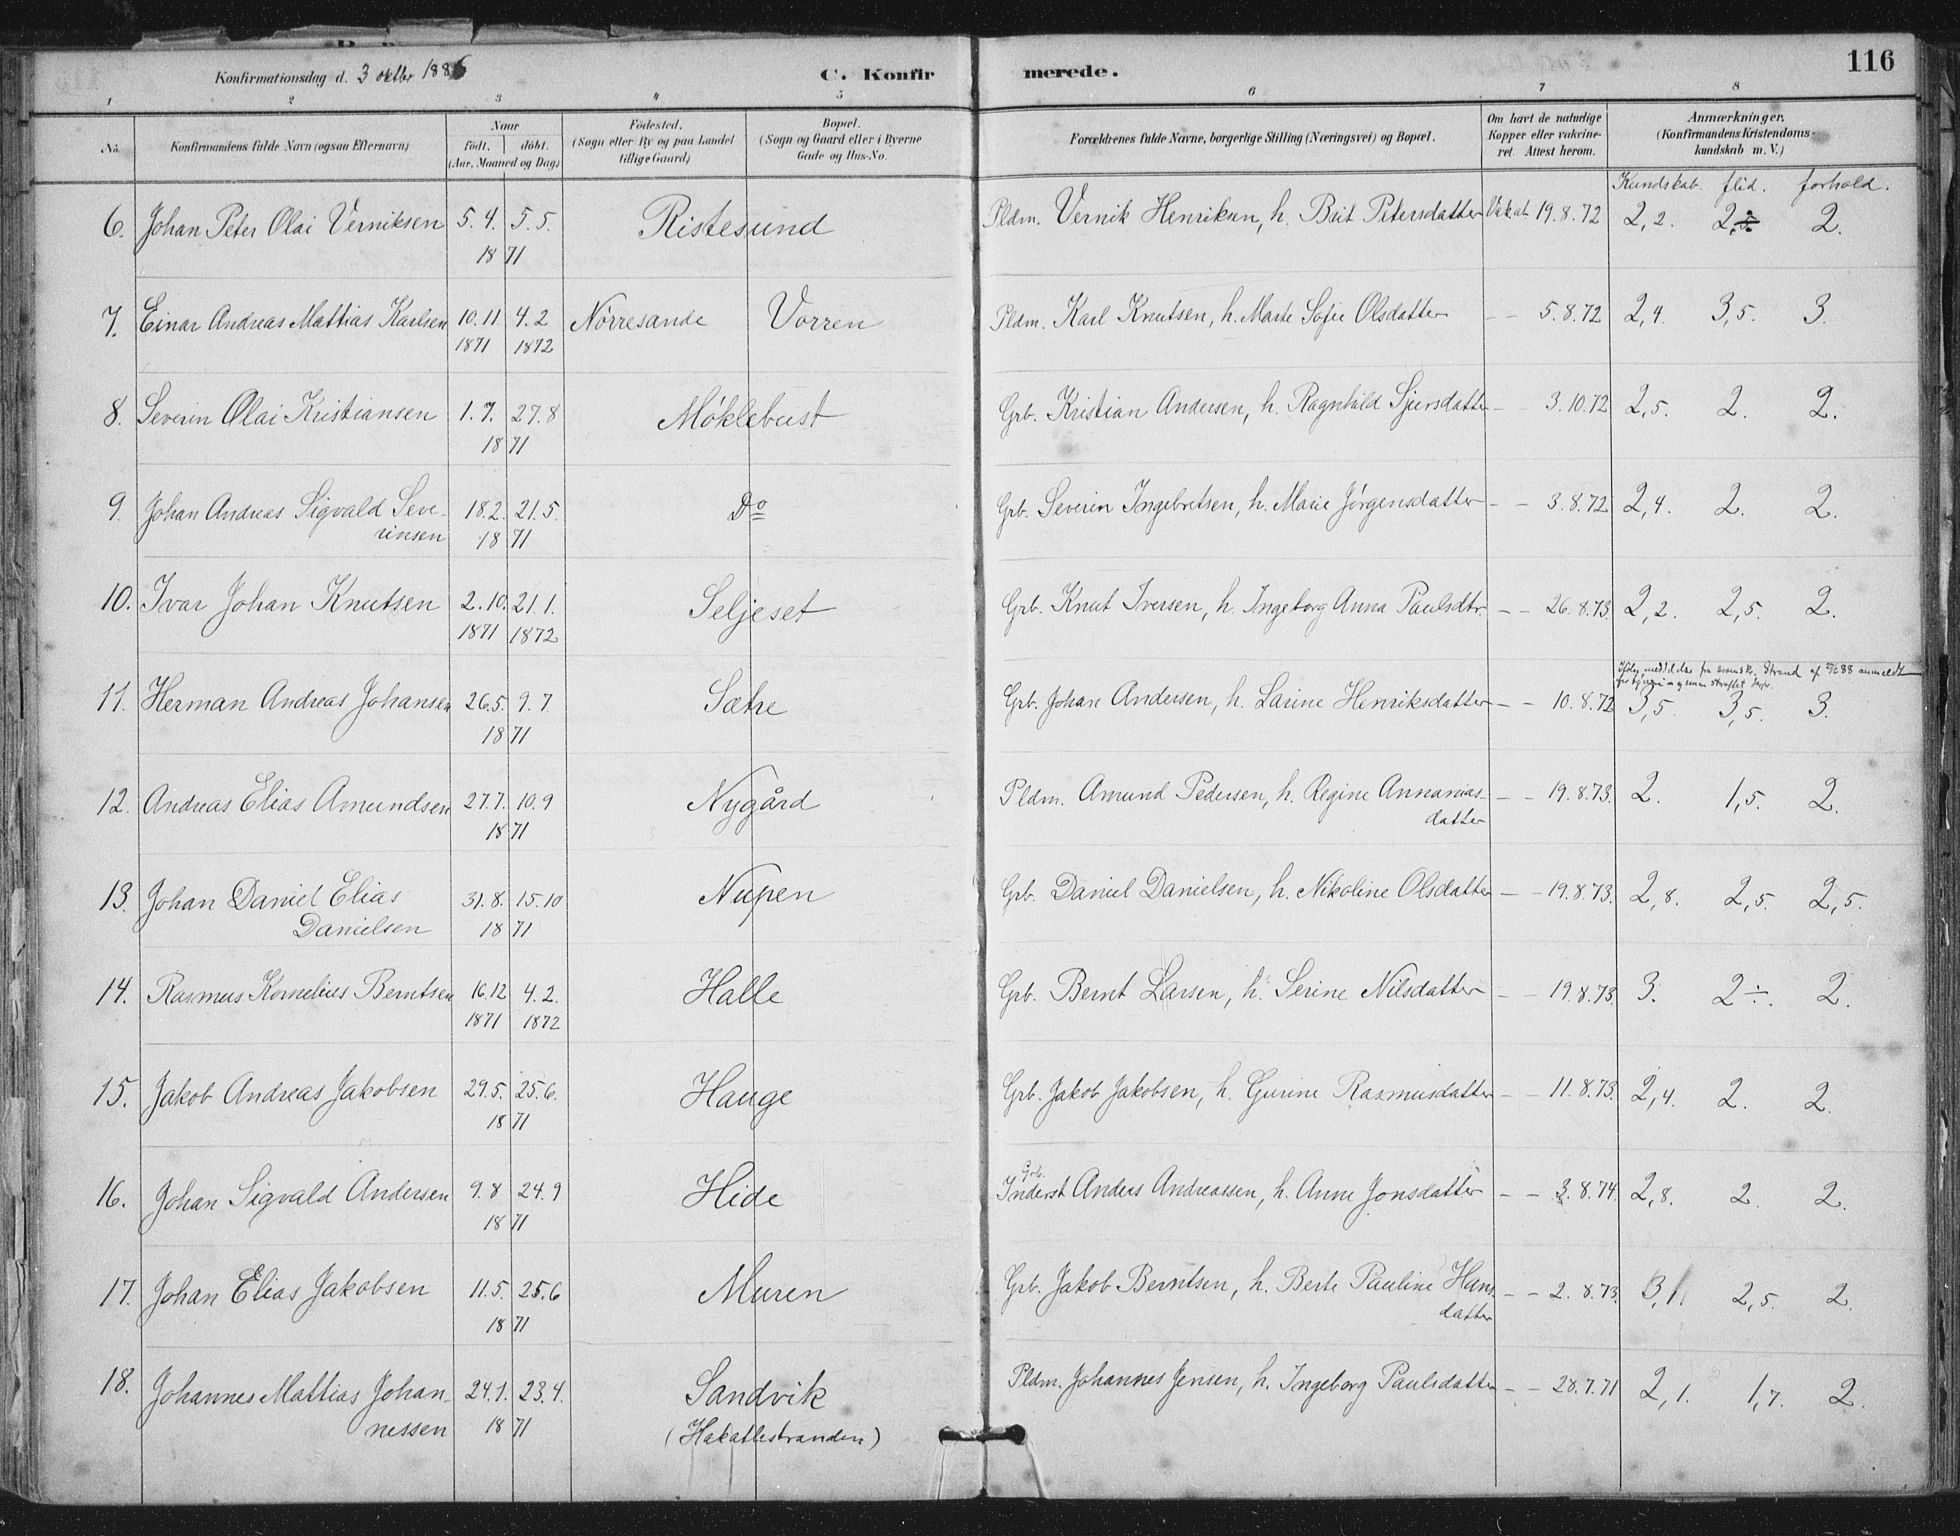 Konfirmationsdag d. 3 oktbr 1886 C. Konfirmerede. 116
1 2 3 4 5 6 7 8
No. Konfirmandens fulde Navn (ogsaa Efternavn) Naar födt. döbt. (Aar, Maaned og Dag) Födested. (Sogn eller By og paa Landet tillige Gaard) Bopæl. (Sogn og Gaard eller i Byerne Gade og Hus-No. Forældrenes fulde Navne, borgerlige Stilling (Næringsvei) og Bopæl. Om havt de naturlige Kopper eller vakcineret. Attest herom. Anmærkninger. (Konfirmandens Kristendomskundskab m. V.)
Kundskab. flid. forhold.
6. Johan Peter Olai Verniksen 5.4. 5.5. Ristesund Pldm. Vernik Henriksen, h. Brit Petersdatter Vakat 19.8.72 2,2. 2 2.
18 71
7. Einar Andreas Mattias Karlsen 10.11 4.2 Nörresande Vorren Pldm. Karl Knutsen, h. Marte Sofie Olsdatter – – 5.8.72 2,4. 3,5. 3.
1871 1872
8. Severin Olai Kristiansen 1.7. 27.8 Møklebust Grb. Kristian Andersen, h. Ragnhild Sjursdatter – – 3.10.72 2,5. 2. 2.
18 71
9. Johan Andreas Sigvald Seve- 18.2. 21.5. Do Grb. Severin Ingebretsen, h. Marie Jørgensdatter – – 3.8.72 2,4. 2. 2.
rinsen 18 71
10. Ivar Johan Knutsen 2.10. 21.1. Seljeset Grb. Knut Iversen, h. Ingeborg Anna Paulsdtr. – – 26.8.73. 2,2. 2,5. 2.
1871 1872
fra Strand af 88 anmeldt
11. Herman Andreas Johansen 26.5. 9.7. Sætre Grb. Johan Andersen, h. Larine Henriksdatter – – 10.8.72 3,5. 3,5. 3.
18 71
12. Andreas Elias Amundsen 27.7. 10.9 Nygård Pldm. Amund Pedersen, h. Regine Annanias- – – 19.8.73. 2. 1,5. 2.
18 71 datter
13. Johan Daniel Elias 31.8. 15.10 Nupen Grb. Daniel Danielsen, h. Nikoline Olsdatter – – 19.8.73. 2,8. 2,5. 2,5.
Danielsen 18 71
14. Rasmus Kornelius Berntsen 16.12 4.2. Halle Grb. Bernt Larsen, h. Serine Nilsdatter – – 19.8.73. 3. 2÷. 2.
1871 1872
15. Jakob Andreas Jakobsen 29.5. 25.6. Hauge Grb. Jakob Jakobsen, h. Gurine Rasmusdatter – – 11.8.73. 2,4. 2. 2.
18 71
Grb.
16. Johan Sigvald Andersen 9.8 24.9 Hide Inderst Anders Andreassen, h. Anne Jonsdatter – – 3.8.74. 2,8. 2. 2.
18 71
17. Johan Elias Jakobsen 11.5. 25.6 Muren Grb. Jakob Berntsen, h. Berte Pauline Hans- – – 2.8.73. 3,1. 2,5. 2.
18 71 datter
18. Johannes Mattias Johan- 24.1. 23.4. Sandvik Pldm. Johannes Jensen, h. Ingeborg Paulsdatter – – 28.7.71 2,1. 1,7. 2.
nessen 18 71 (Hakallestranden)